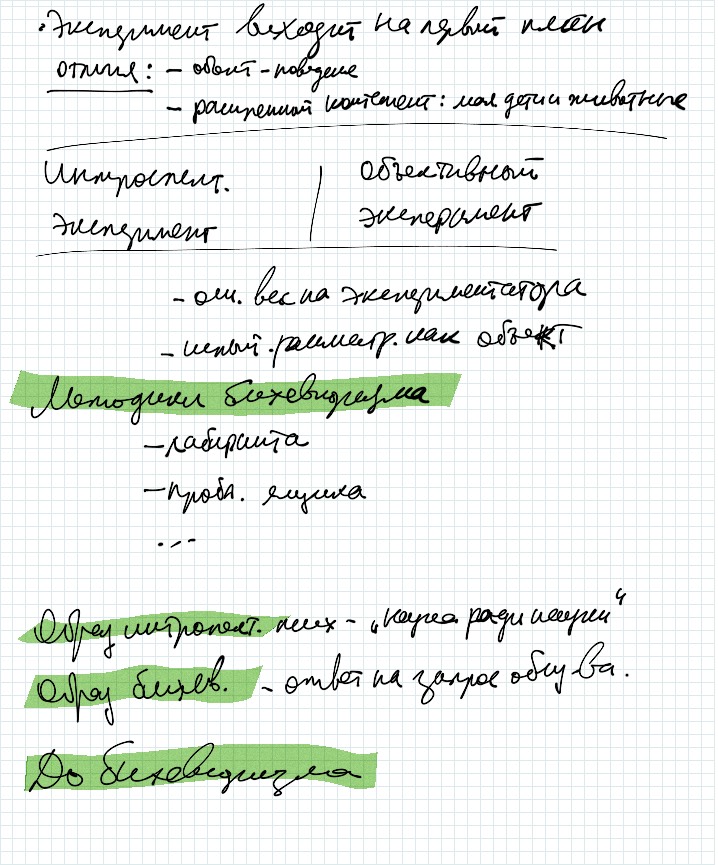 · Эксперимент выходит на первый план
отличия: - объект - поведение
- расширенный контингент: мал. дети и животные
Интроспект. | Объективный
эксперимент | эксперимент
- вес на экспериментатора
- испыт. рассматр. как объект
Методики бихевиоризма
- лабиринта
- пробл. ящика
...
Образ интроспект. псих - „наука ради науки“
Образ бихев. - ответ на запрос общ-ва.
До бихевиоризма